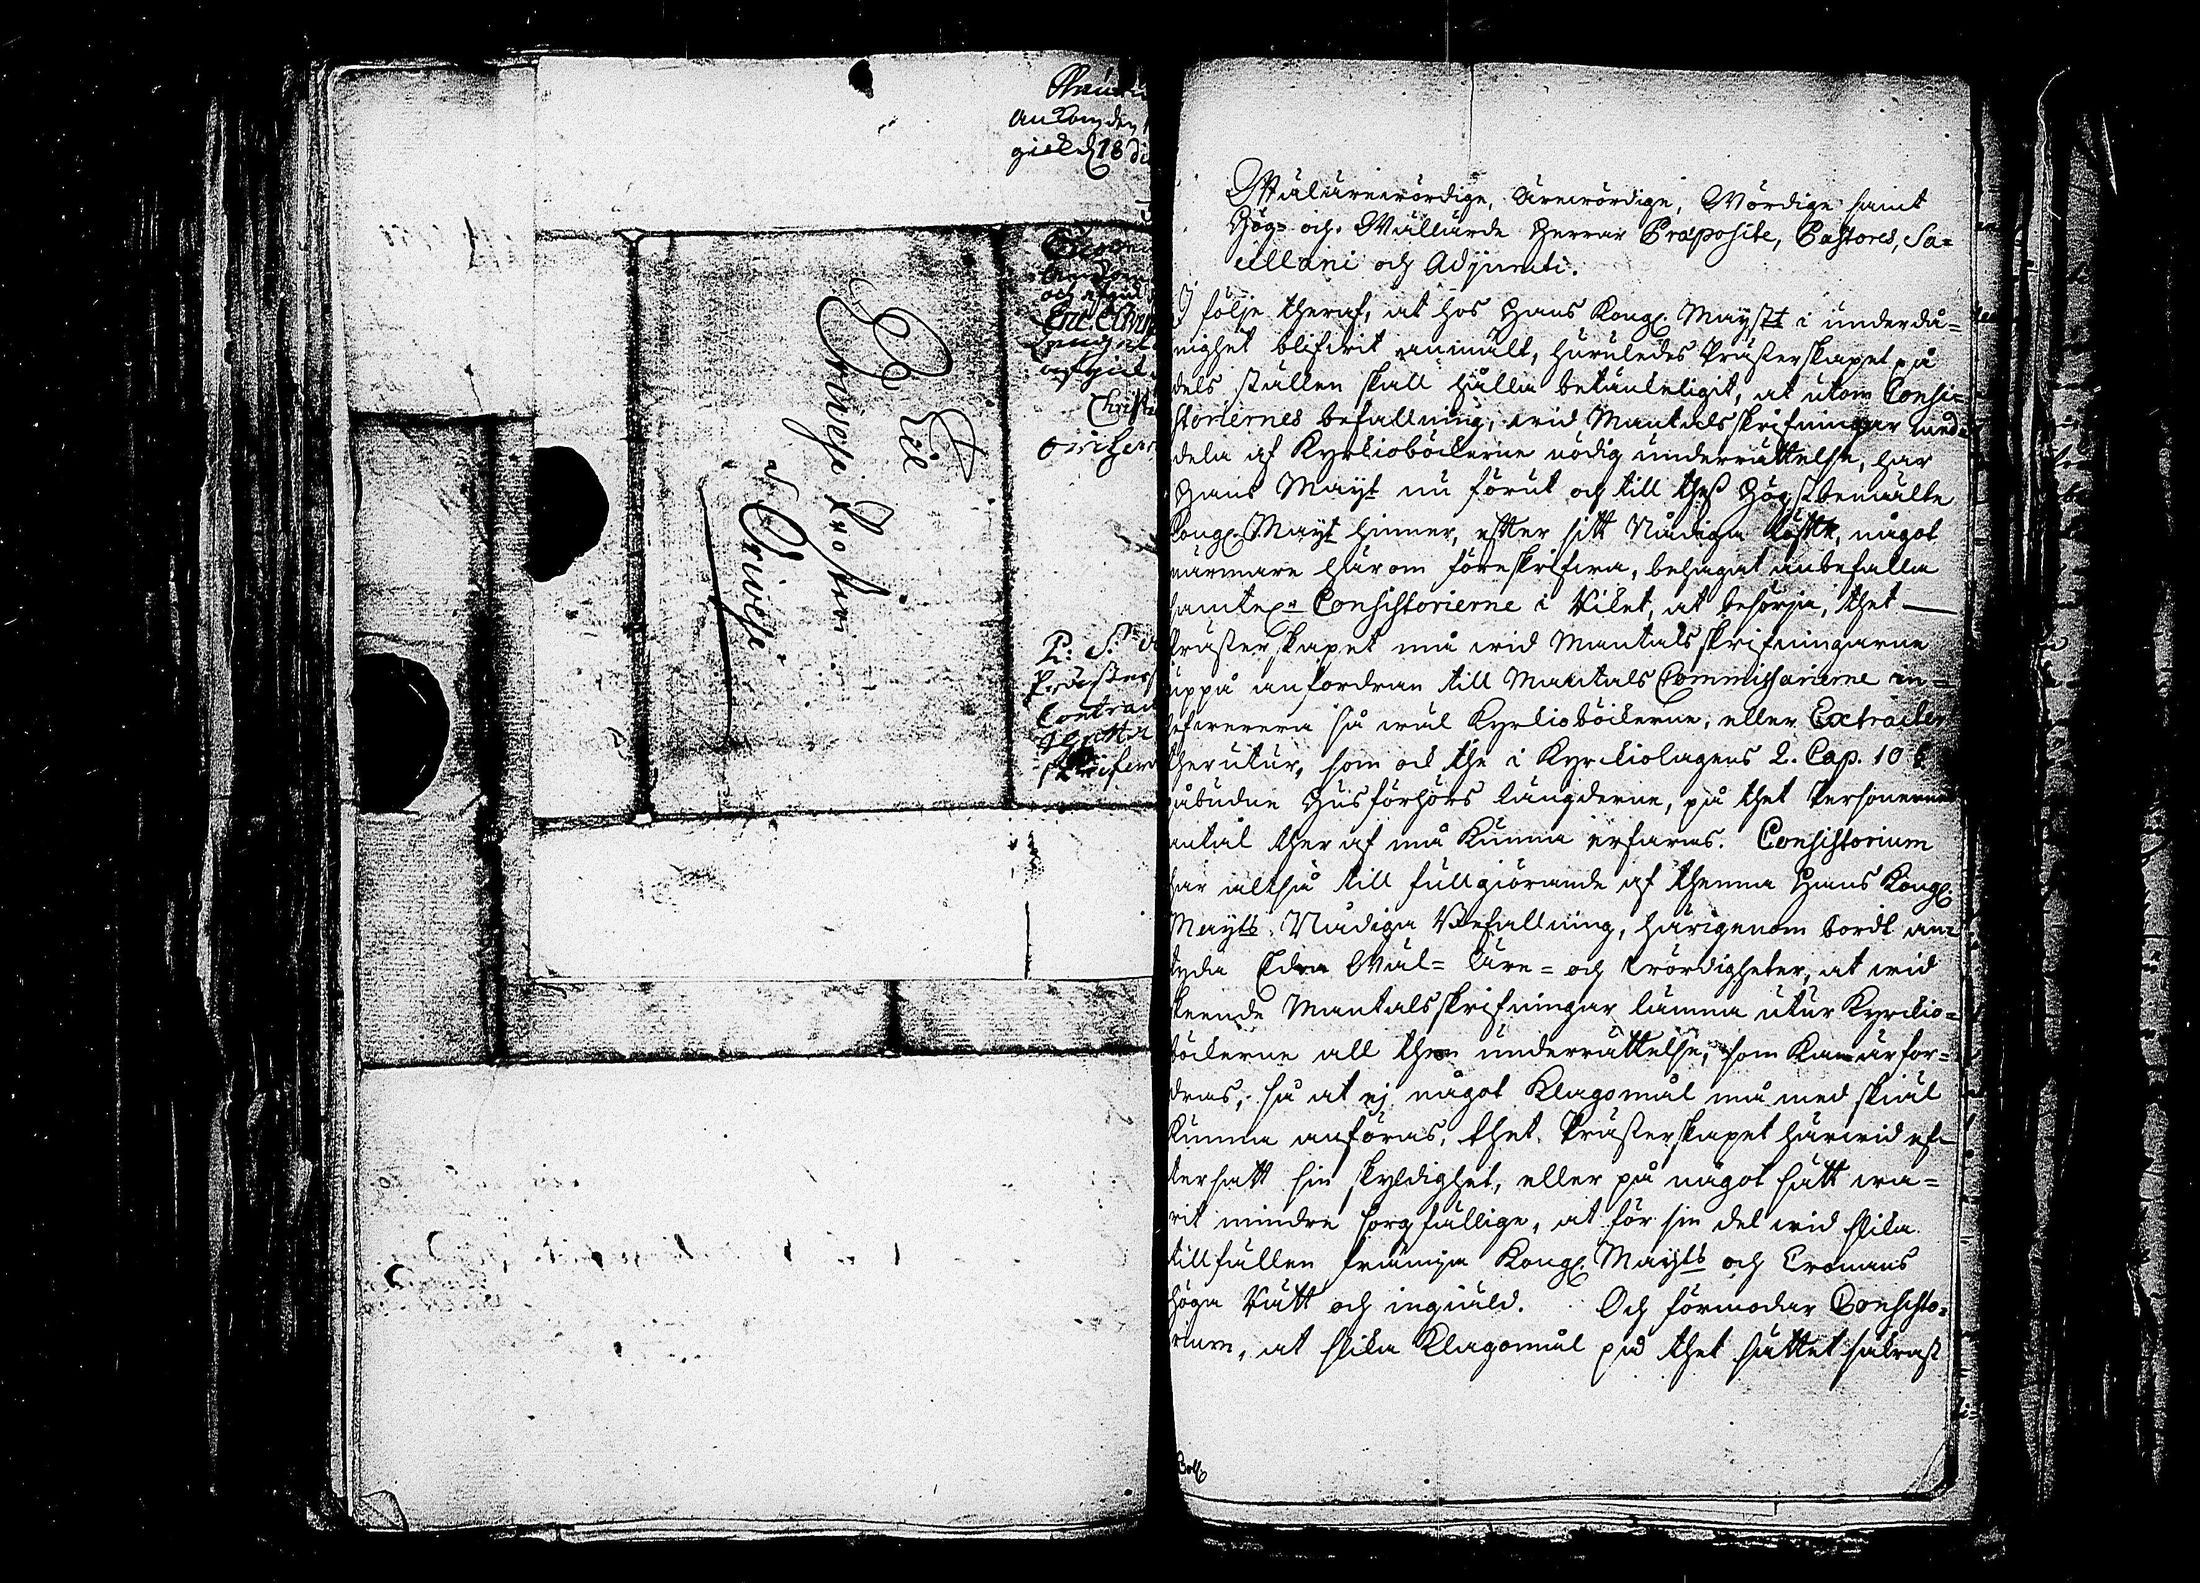 ankom den
gick d 18 di
Til
Orivesi Prosteri
Orivesi
ankom
Christ
P. S.
Präster
Contract
Wälärewördige, Ärewördige, Wördige samt
Hög- och Wällärde Herrar Præposite, Pastores, Sa=
cellani och Adjuncti.
I följe theraf, at hos Hans Kongl. Mayst i underdå=
nighet blifwit anmält, huruledes Prästerskapet på
dels ställen skall hålla betänkeligit, at utom Consi=
storiernes befallning, wid Mantalsskrifningar med=
dela af Kyrkioböckerne nödig underrättelse, har
Hans Mayt nu förut och till thess Högstbemälte
Kongl. Mayt hinner, efter sitt Nådiga, något
närmare härom föreskrifwa, behagat anbefalla
samtel. Consistorierne i Riket, at besörja, thet
Prästerskapet må wid Mantalsskrifningarne
uppå anfordran till Mantals Commissarierne in=
lefwerera så wäl Kyrkioböckerne, eller Extracter
therutur, som ock the i Kyrckiolagens 2. Cap. 10 §
påbudne Husförhörs längderne, på thet Personernes
antal ther af må kunna erfaras. Consistorium
har altså till fullgiörande af thenna Hans Kongl.
Mayts Nådiga Befallning, härigenom bordt an=
tyda Edra Wäl= Äre= och Wördigheter, at wid
skeende Mantalsskrifningar lämna utur Kyrckio=
böckerne all then underrättelse, som kan ärfor=
dras, så at ej något Klagomål må med skiäl
kunna anföras, thet Prästerskapet härwid ef=
tersatt sin skyldighet, eller på något sätt wa=
rit mindre sorgfällige, at för sin del wid slika
tillfällen främja Kongl. Mayts och Cronans
höga Rätt och ingiäld. Och förmodar Consisto=
rium, at slika Klagomål på thet sättet säkrast